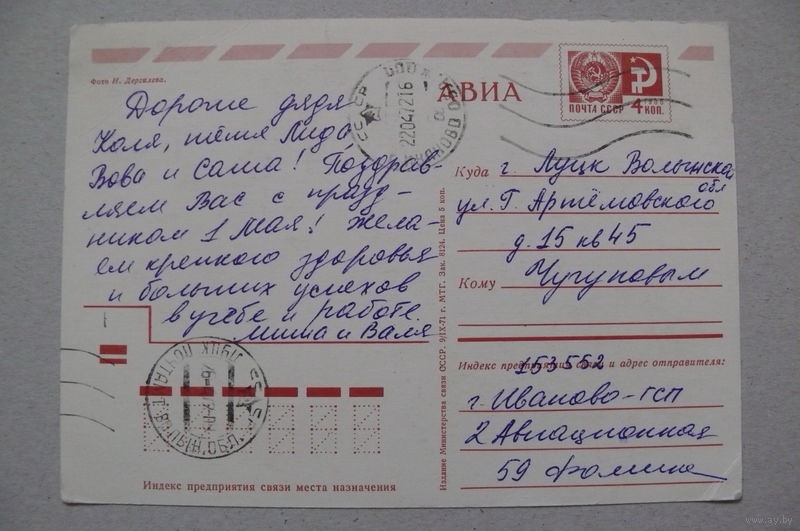 Фото И. Дергилева.
АВИА
ПОЧТА СССР
4 КОП.
1966
Дорогие дядя
Коля, тётя Лида
Вова и Саша! Поздрав-
ляем Вас с празд-
ником 1 Мая! Жела-
ем крепкого здоровья
и больших успехов
в учебе и работе.
Миша и Валя
Куда г. Луцк Волынская
обл
ул. Г. Артёмовского
д. 15 кв 45
Кому Чугуновым
Индекс предприятия связи и адрес отправителя:
153552
г. Иваново-ГСП
2 Авиационная
59 Фомина
Издание Министерства связи СССР. 9/IX-71 г. МТГ. Зак. 8124. Цена 5 коп.
СССР
22047216
СССР
ЛУЦК ПОЧТАМТ
Индекс предприятия связи места назначения
www.ay.by